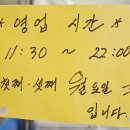 * 영업 시간 *
11:30 ~ 22:00
첫째·셋째 월요일
입니다.